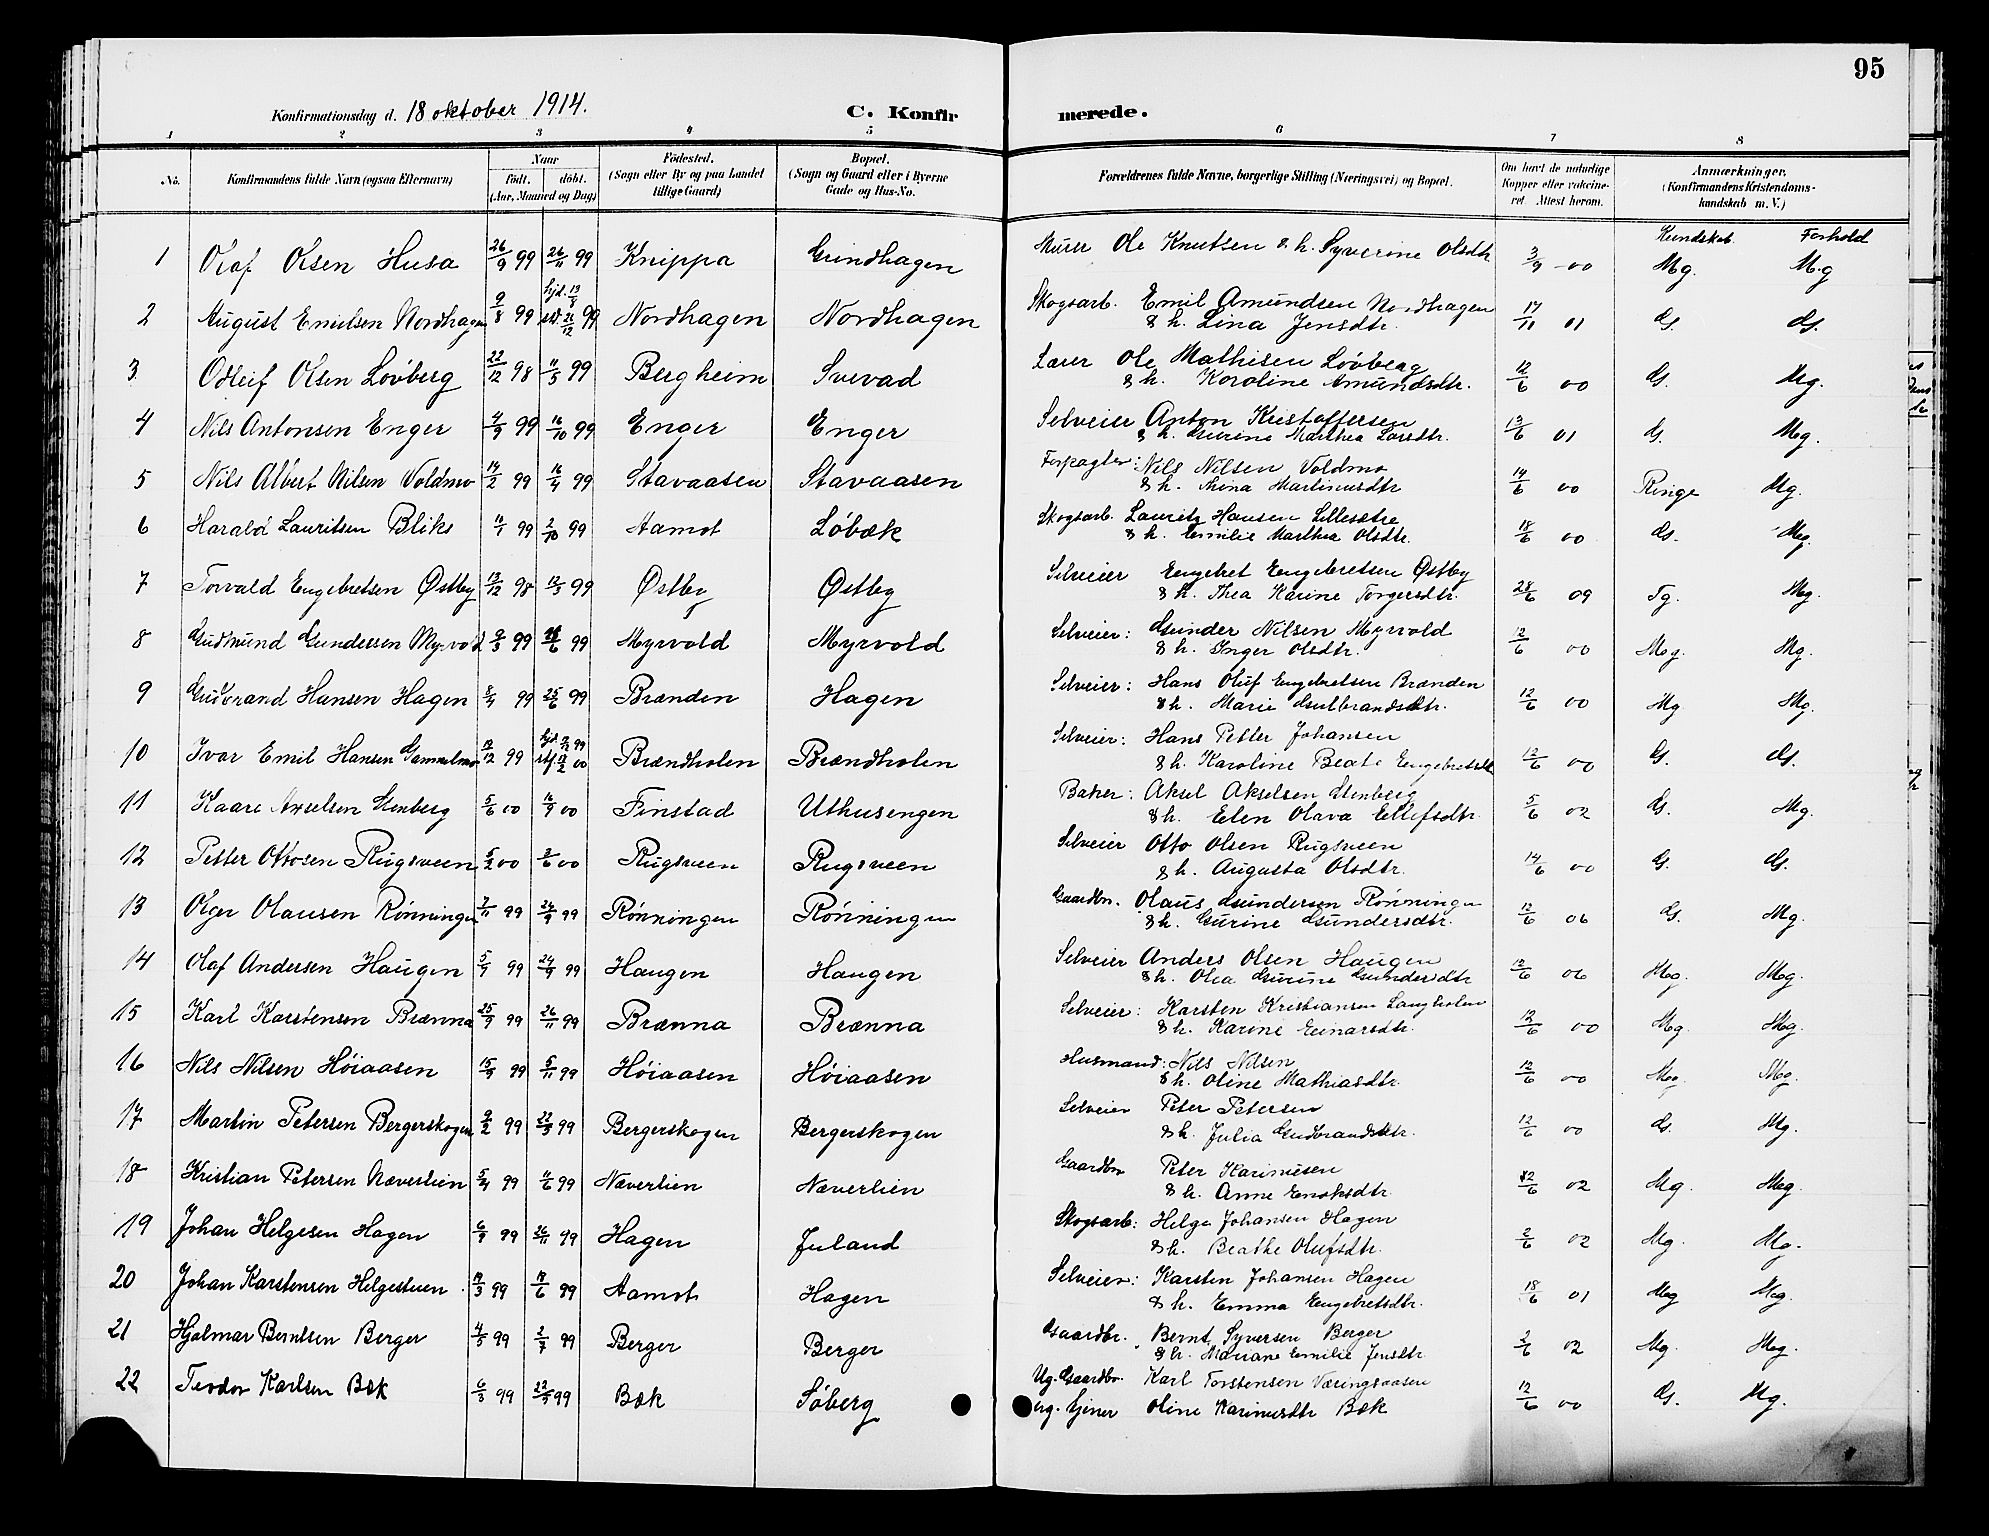 95
Konfirmationsdag d. 18 oktober 1914. C. Konfirmerede.
1 2 3 4 5 6 7 8
No. Konfirmandens fulde Navn (ogsaa Efternavn) Naar født. døbt. (Aar, Maaned og Dag) Fødested. (Sogn eller By og paa Landet tillige Gaard) Bopæl. (Sogn og Gaard eller i Byerne Gade og Hus-No. Forældrenes fulde Navne, borgerlige Stilling (Næringsvei) og Bopæl. Om havt de naturlige Kopper eller vaccineret. Attest herom. Anmærkninger. (Konfirmandens Kristendomskundskab m. V.)
Kundskab. Forhold
1 Olaf Olsen Husa 26/9 99 26/11 99 Knippa Grindhagen Murer Ole Knutsen & h. Syverine Olsdtr 3/9 00 Mg. Mg
2 August Emilsen Nordhagen 9/8 99 hjd. 13/8 std. 26/12 99 Nordhagen Nordhagen Skogsarb. Emil Amundsen Nordhagen
& h. Lina Jensdtr. 17/11 01 G. G.
3 Odleif Olsen Løvberg 22/12 98 11/5 99 Bergheim Svevad Lærer Ole Mathisen Løvberg
& h. Karoline Amundsdtr. 12/6 00 G. Mg.
4 Nils Antonsen Enger 4/9 99 16/10 99 Enger Enger Selveier Anton Kristoffersen
& h. Gurine Marthea Larsdtr. 13/6 01 G. Mg.
5 Nils Albert Nilsen Voldmo 14/2 99 16/4 99 Stavaasen Stavaasen Forpagter: Nils Nilsen Voldmo
& h. Mina Martinusdtr 14/6 00 Ringe Mg.
6 Harald Lauritsen Bliks 11/1 99 2/10 99 Aamot Løbæk Skogsarb. Lauritz Hansen Lillesætre
& h. Emilie Marthea Olsdtr. 18/6 00 G. Mg.
7 Torvald Engebretsen Østby 13/12 98 12/3 99 Østby Østby Selveier Engebret Engebretsen Østby
& h. Thea Karine Torgersdtr. 28/6 09 Tg. Mg.
8 Gudmund Gundersen Myrvold 9/3 99 /6 99 Myrvold Myrvold Selveier: Gunder Nilsen Myrvold
& h. Inger Olsdtr. 12/6 00 Mg. Mg.
9 Gudbrand Hansen Hagen 8/4 99 25/6 99 Brænden Hagen Selveier: Hans Oluf Engebretsen Brænden
& h. Marie Gulbrandsdtr. 12/6 00 Mg Mg.
10 Ivar Emil Hansen Gammelmo 12 99 hjd. 99 stf. 00 Brændholen Brændholen Selveier: Hans Petter Johansen
& h. Karoline Beate Engebretsdtr 12/6 00 G. G.
11 Kaare Axelsen Stenberg 5/6 00 16/9 00 Finstad Uthusengen Baker: Aksel Akselsen Stenberg
& h. Elen Olava Ellefsdtr. 5/6 02 G. Mg.
12 Petter Ottosen Rugsveen 5/2 00 3/6 00 Rugsveen Rugsveen Selveier Otto Olsen Rugsveen
& h. Augusta Olsdtr. 14/6 00 G. G.
13 Olger Olausen Rønningen 7/11 99 24/9 99 Rønningen Rønningen Gaardbr. Olaus Gundersen Rønningen
& h. Gurine Gundersdtr. 12/6 06 G. Mg.
14 Olaf Andersen Haugen 5/9 99 24/9 99 Haugen Haugen Selveier Anders Olsen Haugen
& h. Olea Gurine Gundersdtr 12/6 06 Mg Mg.
15 Karl Karstensen Brænna 25/9 99 26/11 99 Brænna Brænna Selveier: Karsten Kristiansen Langholen
& h. Karine Einarsdtr. 12/6 00 Mg. Mg.
16 Nils Nilsen Høiaasen 15/9 99 5/11 99 Høiaasen Høiaasen Husmand: Nils Nilsen
& h. Oline Mathiasdtr. 12/6 00 Mg. Mg.
17 Martin Petersen Bergerskogen 9/2 99 22/5 99 Bergerskogen Bergerskogen Selveier Peter Petersen
& h. Julia Gudbrandsdtr. 12/6 00 G. Mg.
18 Kristian Petersen Næverlien 5/4 99 11/6 99 Næverlien Næverlien Gaardbr Peter Karinusen
& h. Anne Enoksdtr. 12/6 02 Mg. Mg.
19 Johan Helgesen Hagen 6/9 99 26/11 99 Hagen Juland Skogsarb: Helge Johansen Hagen
& h. Beathe Olufsdtr. 2/6 02 Mg. Mg.
20 Johan Karstensen Helgestuen 14/3 99 18/6 99 Aamot Hagen Selveier: Karsten Johansen Hagen
& h. Emma Engebretsdtr. 18/6 01 Mg Mg.
21 Hjalmar Berntsen Berger 4/5 99 2/7 99 Berger Berger Gaardbr. Bernt Syversen Berger
& h. Mariane Emilie Jensdtr. 2/6 02 Mg Mg.
22 Teodor Karlsen Bæk 6/3 99 22/5 99 Bæk Søberg Ug. Gaardbr. Karl Torstensen Væringsaasen
ug. tjener Oline Karinusdtr Bæk 12/6 00 G. Mg.